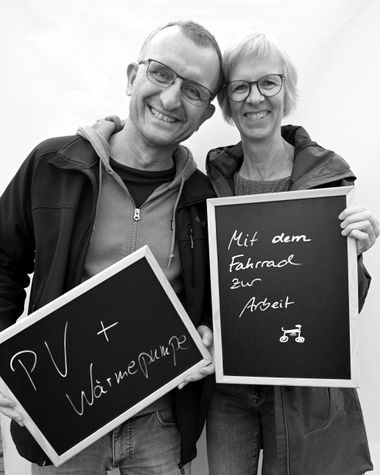 PV +
Wärmepumpe
Mit dem
Fahrrad
zur
Arbeit